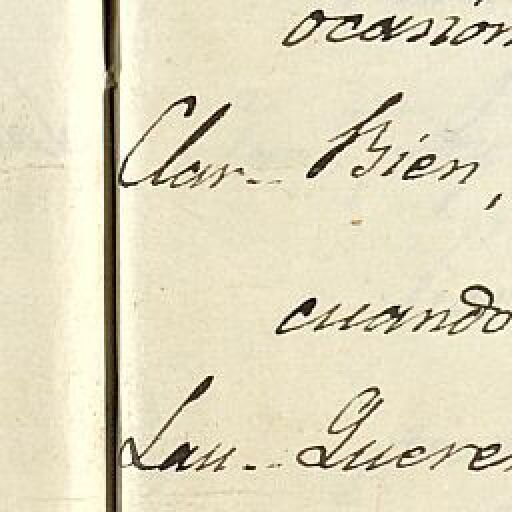 ocasion
Clar- Bien,
cuando
Lau-- Quere